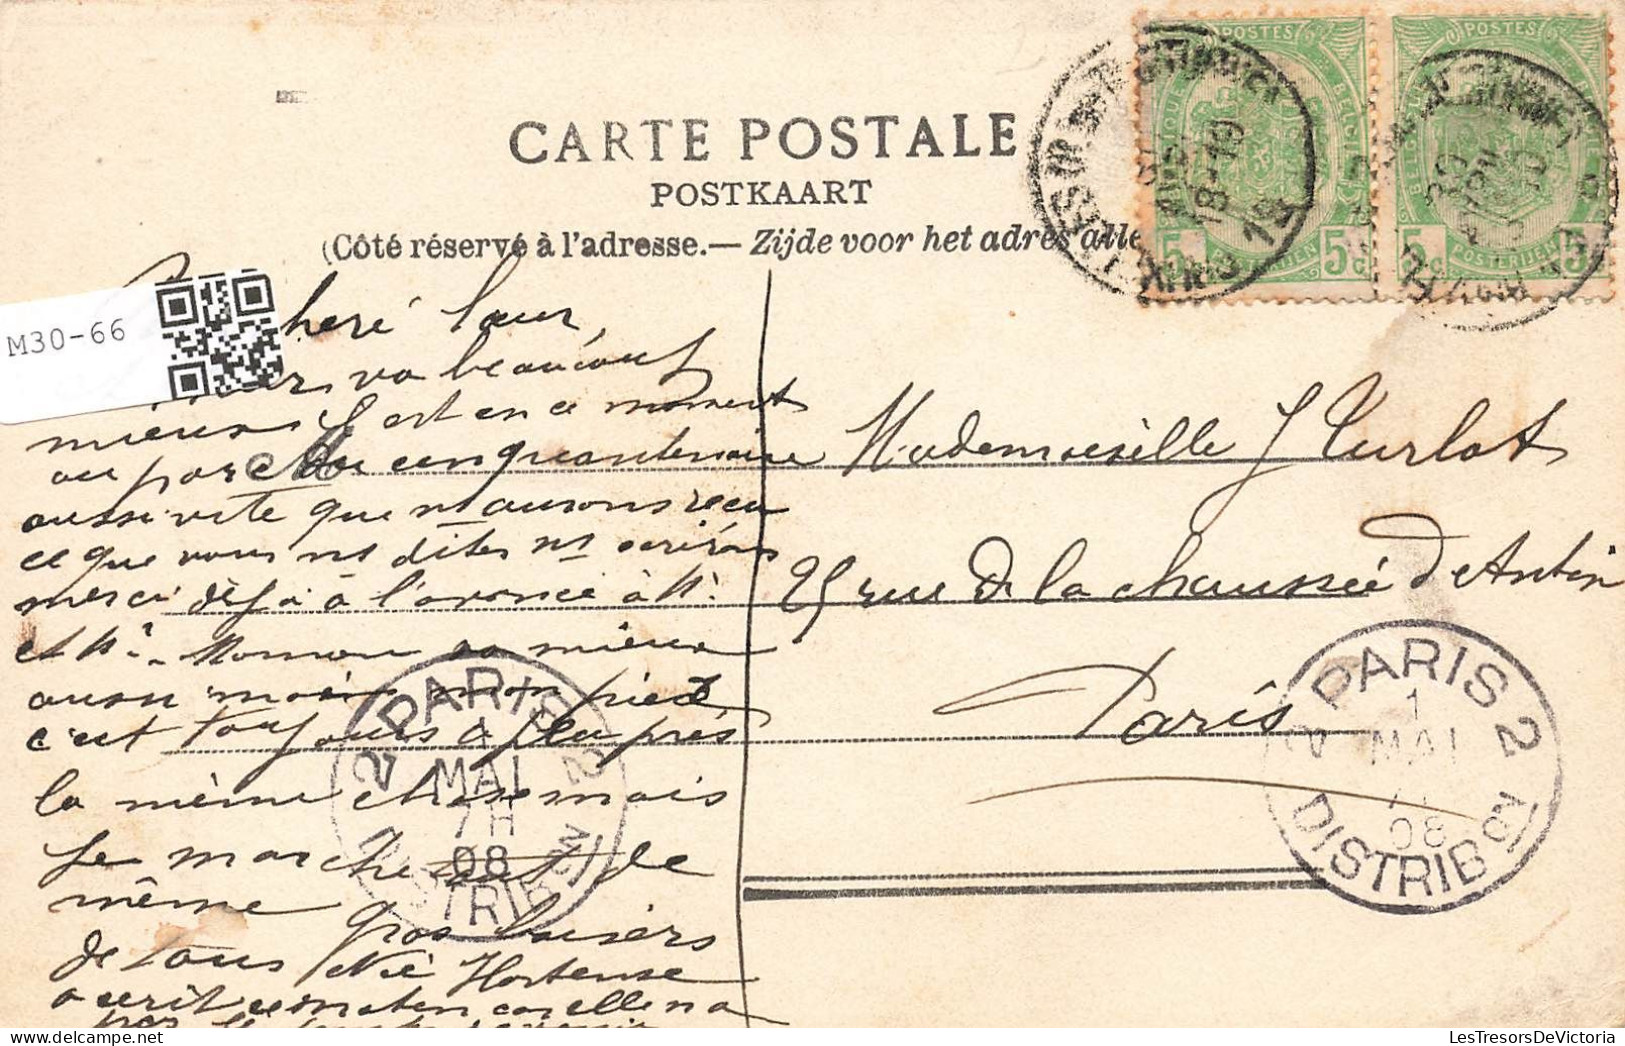 CARTE POSTALE
POSTKAART
(Côté réservé à l'adresse.— Zijde voor het adres alle
POSTES
5c 5c
POSTES
POSTERIJEN
5c
M30-66
heré Sœur,
va beaucoup
mieux il est en ce moment
au parc du cinquantenaire
aussi vite que ns aurons reçu
ce que vous ns dites ns
merci déja à l'avance à Mr
et Mr. Maman va mieux
aussi mais mon pied
c'est toujours à peu près
la même chose mais
je marche tout de
même Gros baisers
de tous Hortense
a écrit ce matin car elle n'a
pas le temps
Mademoiselle J Turlot
25 rue de la chaussée d'Antin
Paris
PARIS 2
1
MAI
7H
08
DISTRIBON
PARIS 2
1
MAI
08
DISTRIB
LesTresorsDeVictoria